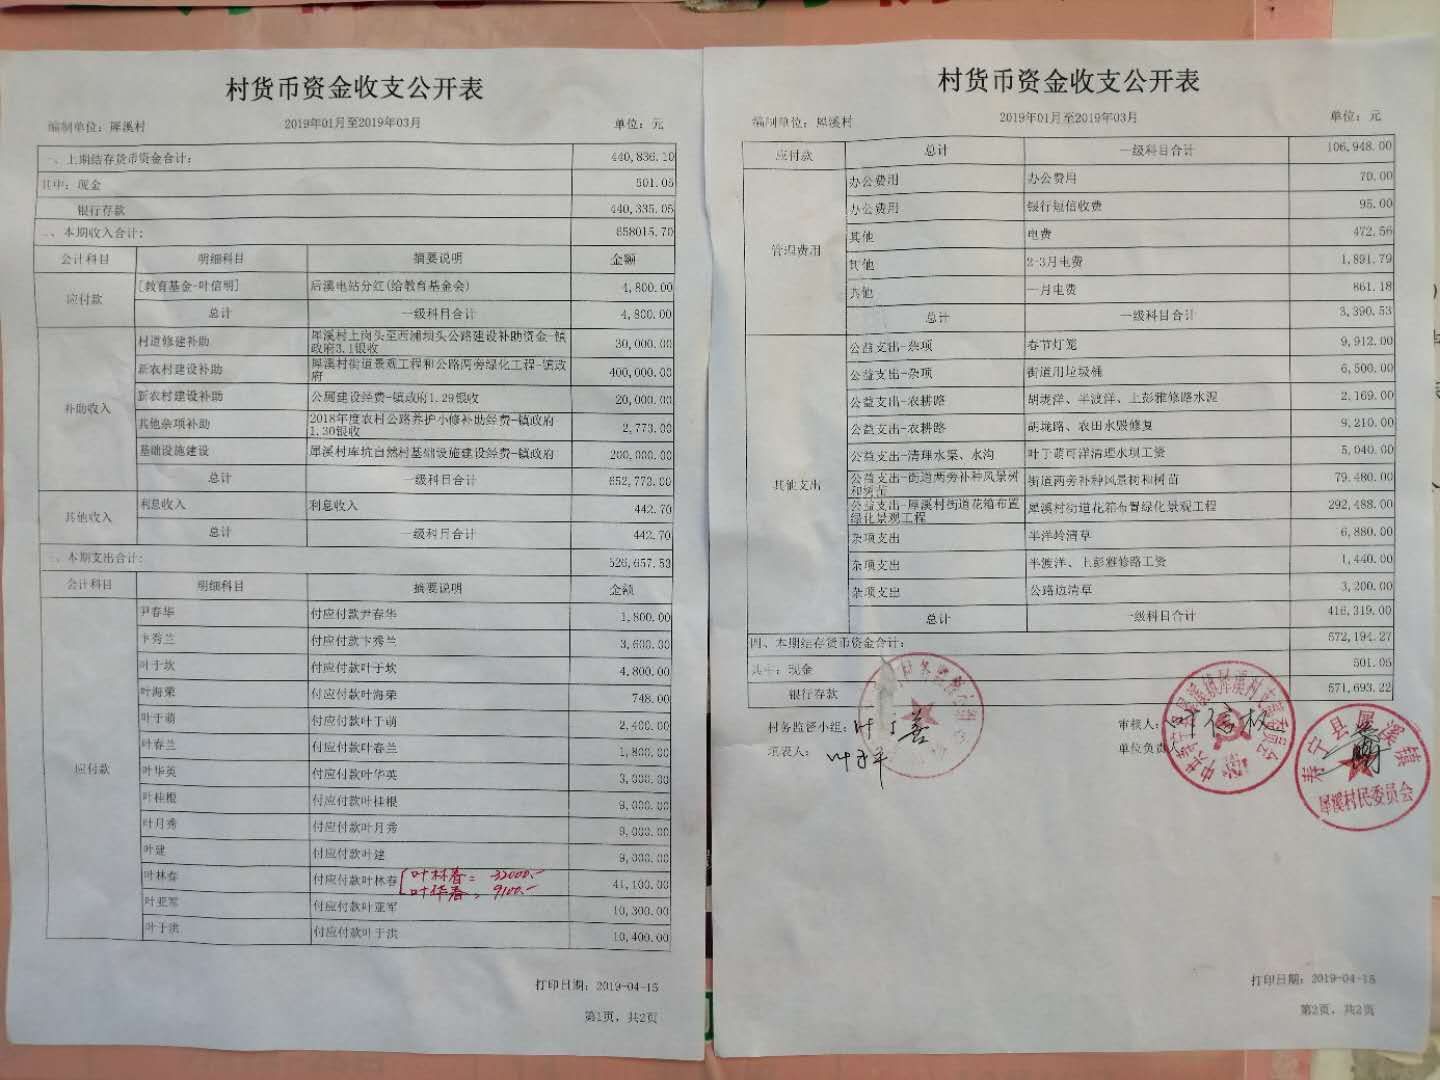 村货币资金收支公开表
编制单位：犀溪村 2019年01月至2019年03月 单位：元
一、上期结存货币资金合计： 440,836.10
其中：现金 501.05
银行存款 440,335.05
二、本期收入合计： 658015.70
会计科目 明细科目 摘要说明 金额
应付款 [教育基金-叶信明] 后溪电站分红(给教育基金会) 4,800.00
总计 一级科目合计 4,800.00
补助收入 村道修建补助 犀溪村上岗头至西浦坝头公路建设补助资金-镇政府3.1银收 30,000.00
新农村建设补助 犀溪村街道景观工程和公路两旁绿化工程-镇政府 400,000.00
新农村建设补助 公厕建设经费-镇政府1.29银收 20,000.00
其他杂项补助 2018年度农村公路养护小修补助经费-镇政府1.30银收 2,773.00
基础设施建设 犀溪村库坑自然村基础设施建设经费-镇政府 200,000.00
总计 一级科目合计 652,773.00
其他收入 利息收入 利息收入 442.70
总计 一级科目合计 442.70
三、本期支出合计： 526,657.53
会计科目 明细科目 摘要说明 金额
应付款 尹春华 付应付款尹春华 1,800.00
卞秀兰 付应付款卞秀兰 3,600.00
叶于坎 付应付款叶于坎 4,800.00
叶海荣 付应付款叶海荣 748.00
叶于萌 付应付款叶于萌 2,400.00
叶春兰 付应付款叶春兰 1,800.00
叶华英 付应付款叶华英 3,000.00
叶桂根 付应付款叶桂根 9,000.00
叶月秀 付应付款叶月秀 9,000.00
叶建 付应付款叶建 9,000.00
叶林春 付应付款叶林春 叶林春：32000.- 41,100.00
叶华春：9100.-
叶亚军 付应付款叶亚军 10,300.00
叶于洪 付应付款叶于洪 10,400.00
打印日期：2019-04-15
第1页，共2页
村货币资金收支公开表
编制单位：犀溪村 2019年01月至2019年03月 单位：元
应付款 总计 一级科目合计 106,948.00
管理费用 办公费用 办公费用 70.00
办公费用 银行短信收费 95.00
其他 电费 472.56
其他 2-3月电费 1,891.79
其他 一月电费 861.18
总计 一级科目合计 3,390.53
其他支出 公益支出-杂项 春节灯笼 9,912.00
公益支出-杂项 街道用垃圾桶 6,500.00
公益支出-农耕路 胡垅洋、半渡洋、上彭雅修路水泥 2,169.00
公益支出-农耕路 胡垅路、农田水毁修复 9,210.00
公益支出-清理水渠、水沟 叶于萌可洋清理水坝工资 5,040.00
公益支出-街道两旁补种风景树和树苗 街道两旁补种风景树和树苗 79,480.00
公益支出-犀溪村街道花箱布置绿化景观工程 犀溪村街道花箱布置绿化景观工程 292,488.00
杂项支出 半洋岭清草 6,880.00
杂项支出 半渡洋、上彭雅修路工资 1,440.00
杂项支出 公路边清草 3,200.00
总计 一级科目合计 416,319.00
四、本期结存货币资金合计： 572,194.27
其中：现金 501.05
银行存款 571,693.22
村务监督小组： 审核人：叶信材
填表人：叶于平 单位负责人
寿宁县犀溪镇
犀溪村民委员会
打印日期：2019-04-15
第2页，共2页